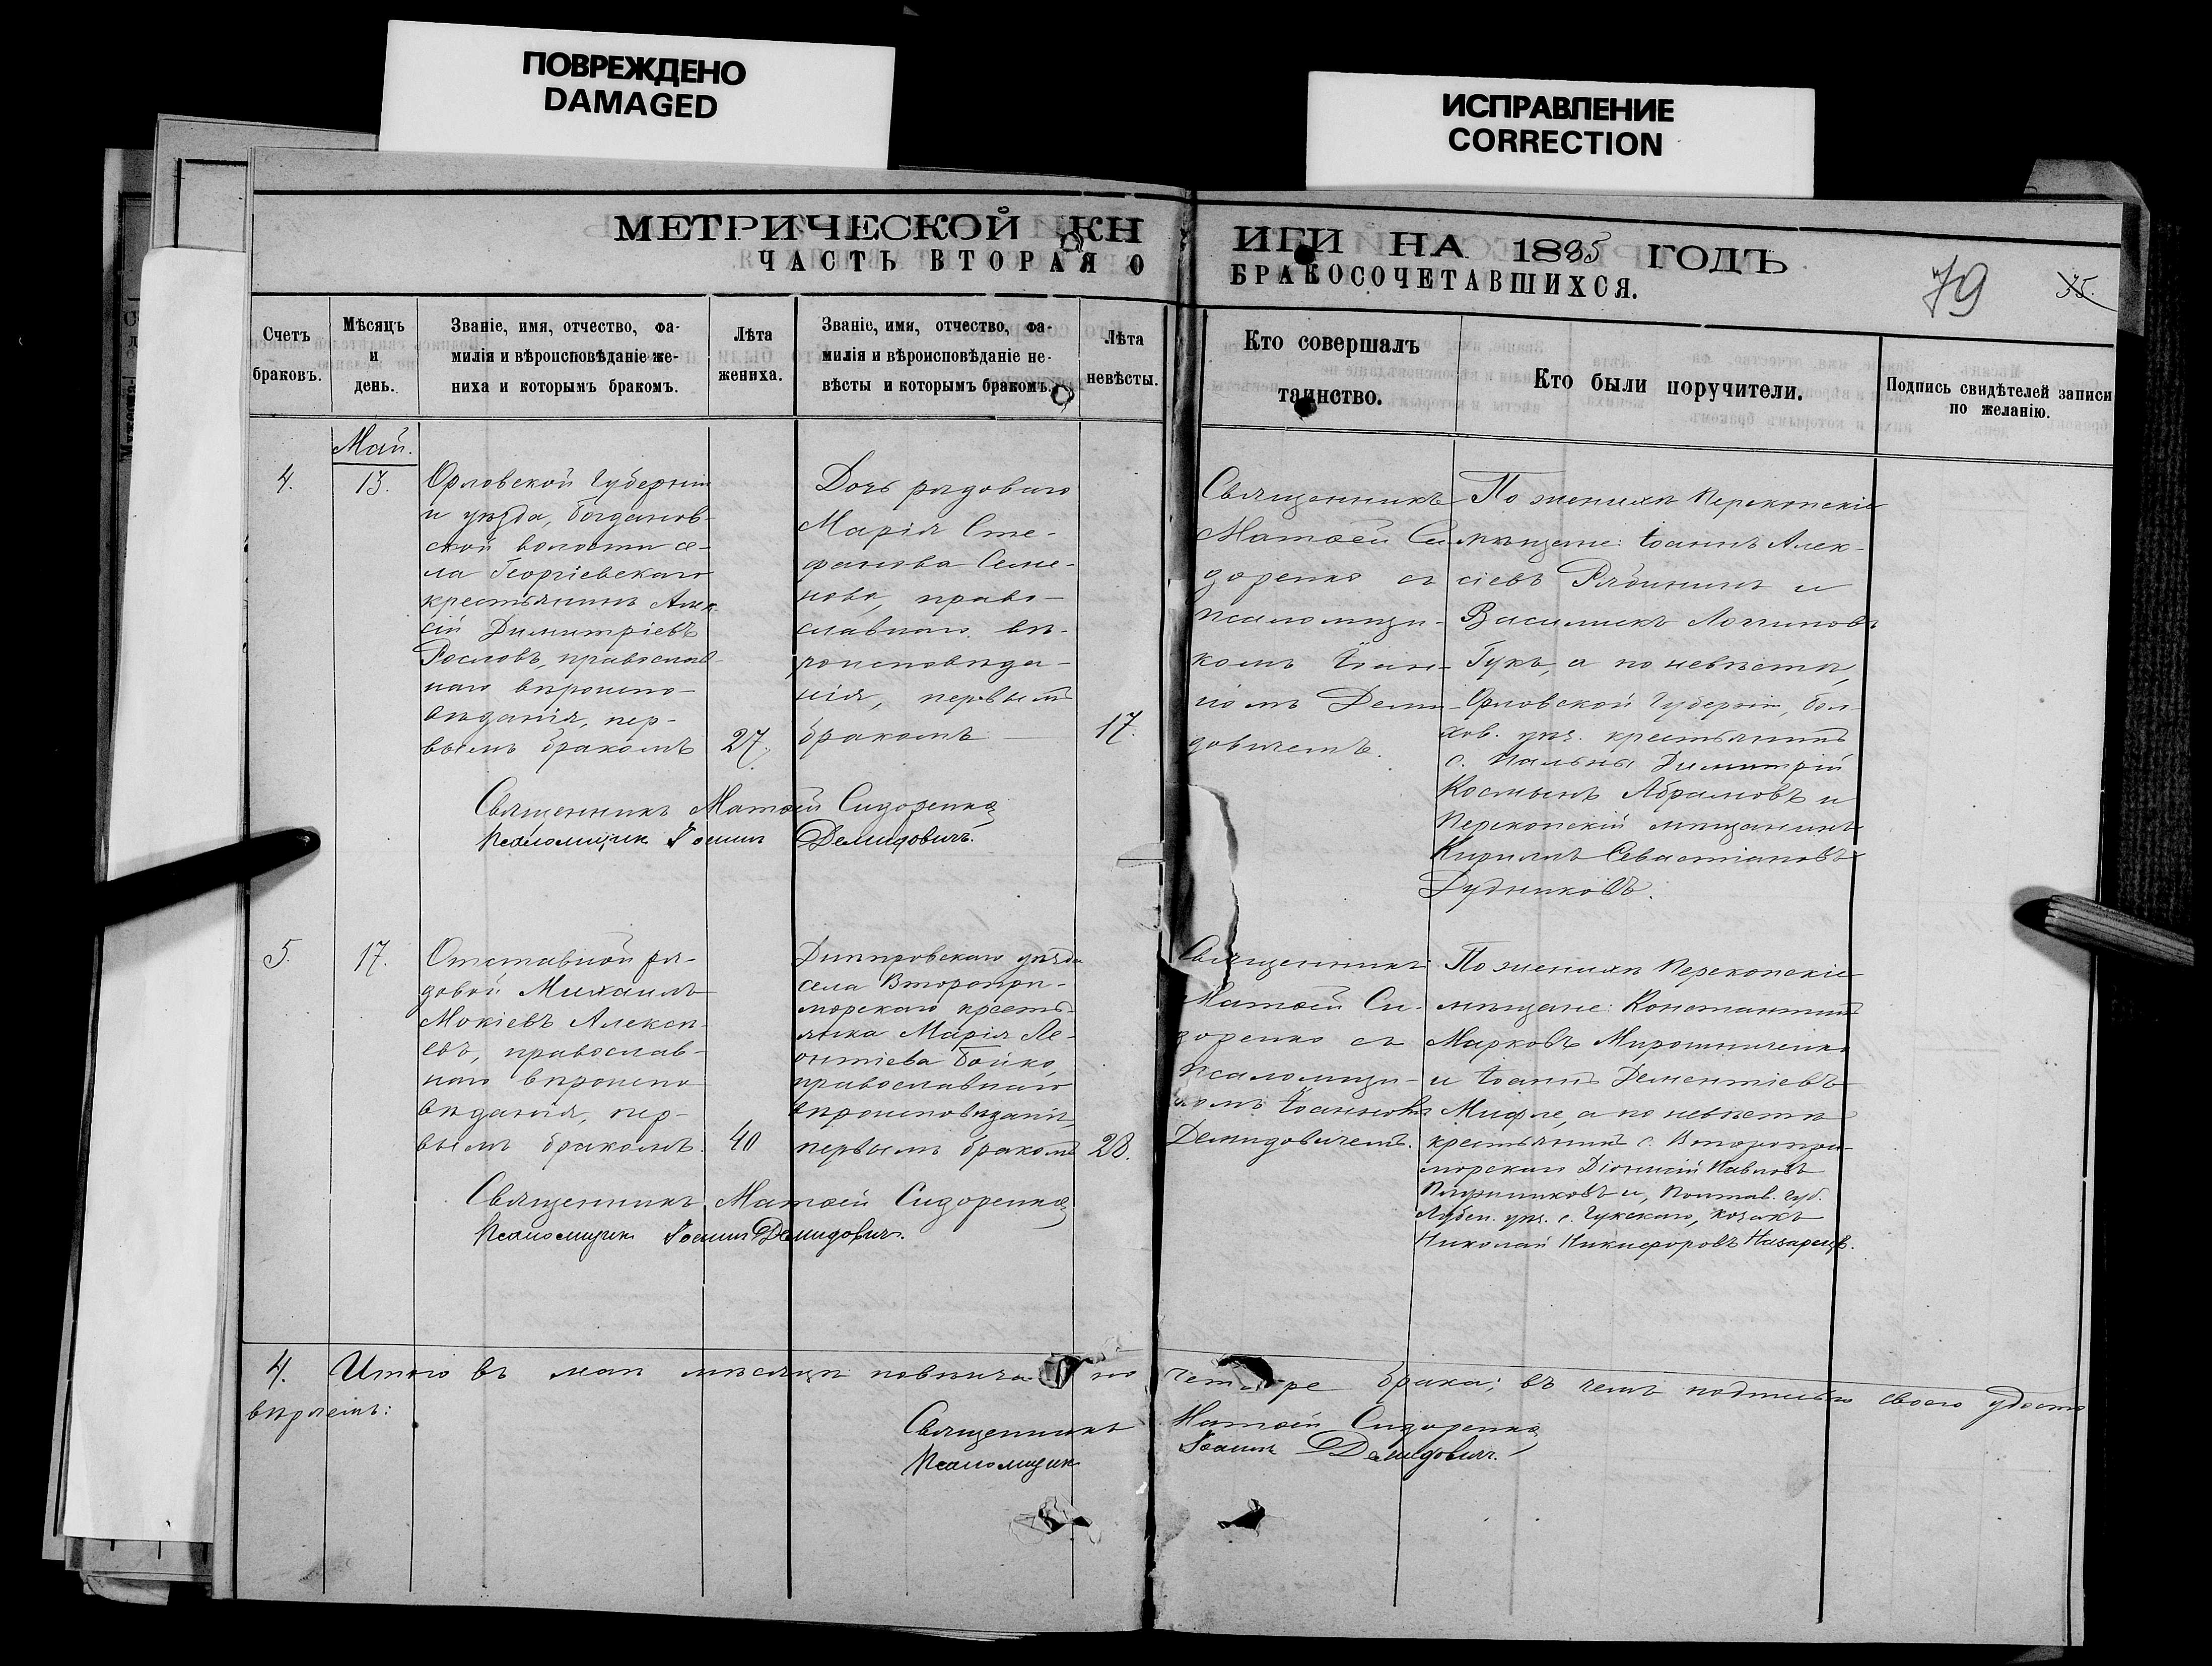 ПОВРЕЖДЕНО
DAMAGED
ИСПРАВЛЕНИЕ
CORRECTION
МЕТРИЧЕСКОЙ КН
ИГИ НА 1885 ГОДЪ
ЧАСТЬ ВТОРАЯ О
БРАКОСОЧЕТАВШИХСЯ.
79
35.
Счетъ
браковъ.
Мѣсяцъ
и
день.
Званіе, имя, отчество, фа-
милія и вѣроисповѣданіе же-
ниха и которымъ бракомъ.
Лѣта
жениха.
Званіе, имя, отчество, фа-
милія и вѣроисповѣданіе не-
вѣсты и которымъ бракомъ.
Лѣта
невѣсты.
Кто совершалъ
таинство.
Кто были поручители.
Подпись свидѣтелей записи
по желанію.
Май.
4.
13.
Орловской Губерніи
и уѣзда, Богданов-
ской волости се-
ла Георгіевскаго
крестьянинъ Алек-
сій Димитріевъ
Рословъ, православ-
наго вѣроиспо-
вѣданія, пер-
вымъ бракомъ
27.
Дочь рядоваго
Марія Сте-
фанова Семе-
нова, право-
славнаго вѣ-
роисповѣда-
нія, первымъ
бракомъ
17.
Священникъ
Матѳей Си-
доренко съ
псаломщи-
комъ
Деми-
довичемъ.
По женихѣ Перекопскіе
мѣщане: Іоаннъ Алек-
сіевъ и
Василискъ Логиновъ
Гукъ, а по невѣстѣ,
Орловской Губерніи, Бол-
хов. уѣз. крестьянинъ
с. Пальны Димитрій
Космынъ Абрамовъ и
Перекопскій мѣщанинъ
Кириллъ Севастіановъ
Дудниковъ.
Священникъ Матѳей Сидоренко
Псаломщик Іоанн Демидовичъ.
5.
17.
Отставной ря-
довой Михаилъ
Мокіевъ Алексѣ-
евъ, православ-
наго вѣроиспо-
вѣданія, пер-
вымъ бракомъ.
40
Днѣпровскаго уѣзда
села Второпри-
морскаго кресть-
янка Марія Ле-
онтіева Бойко,
православнаго
вѣроисповѣданія,
первымъ бракомъ
28.
Священникъ
Матѳей Си-
доренко съ
псаломщи-
комъ Іоанномъ
Демидовичемъ.
По женихѣ Перекопскіе
мѣщане: Константинъ
Марковъ Мирошниченко
и Іоаннъ Дементіевъ
а по невѣстѣ
крестьянинъ с. Второпри-
морскаго Діонисій Павловъ
и, Полтав. губ.
Лубен. уѣз. с. козакъ
Николай Никифоровъ Назаренко.
Священникъ Матѳей Сидоренко
Псаломщикъ Іоанн Демидович.
4. Итого въ маѣ мѣсяцѣ повѣнча но четыре брака; въ чемъ подписью своею удосто
вѣряемъ:
Священникъ Матѳей Сидоренко
Псаломщик Іоанн Демидович.